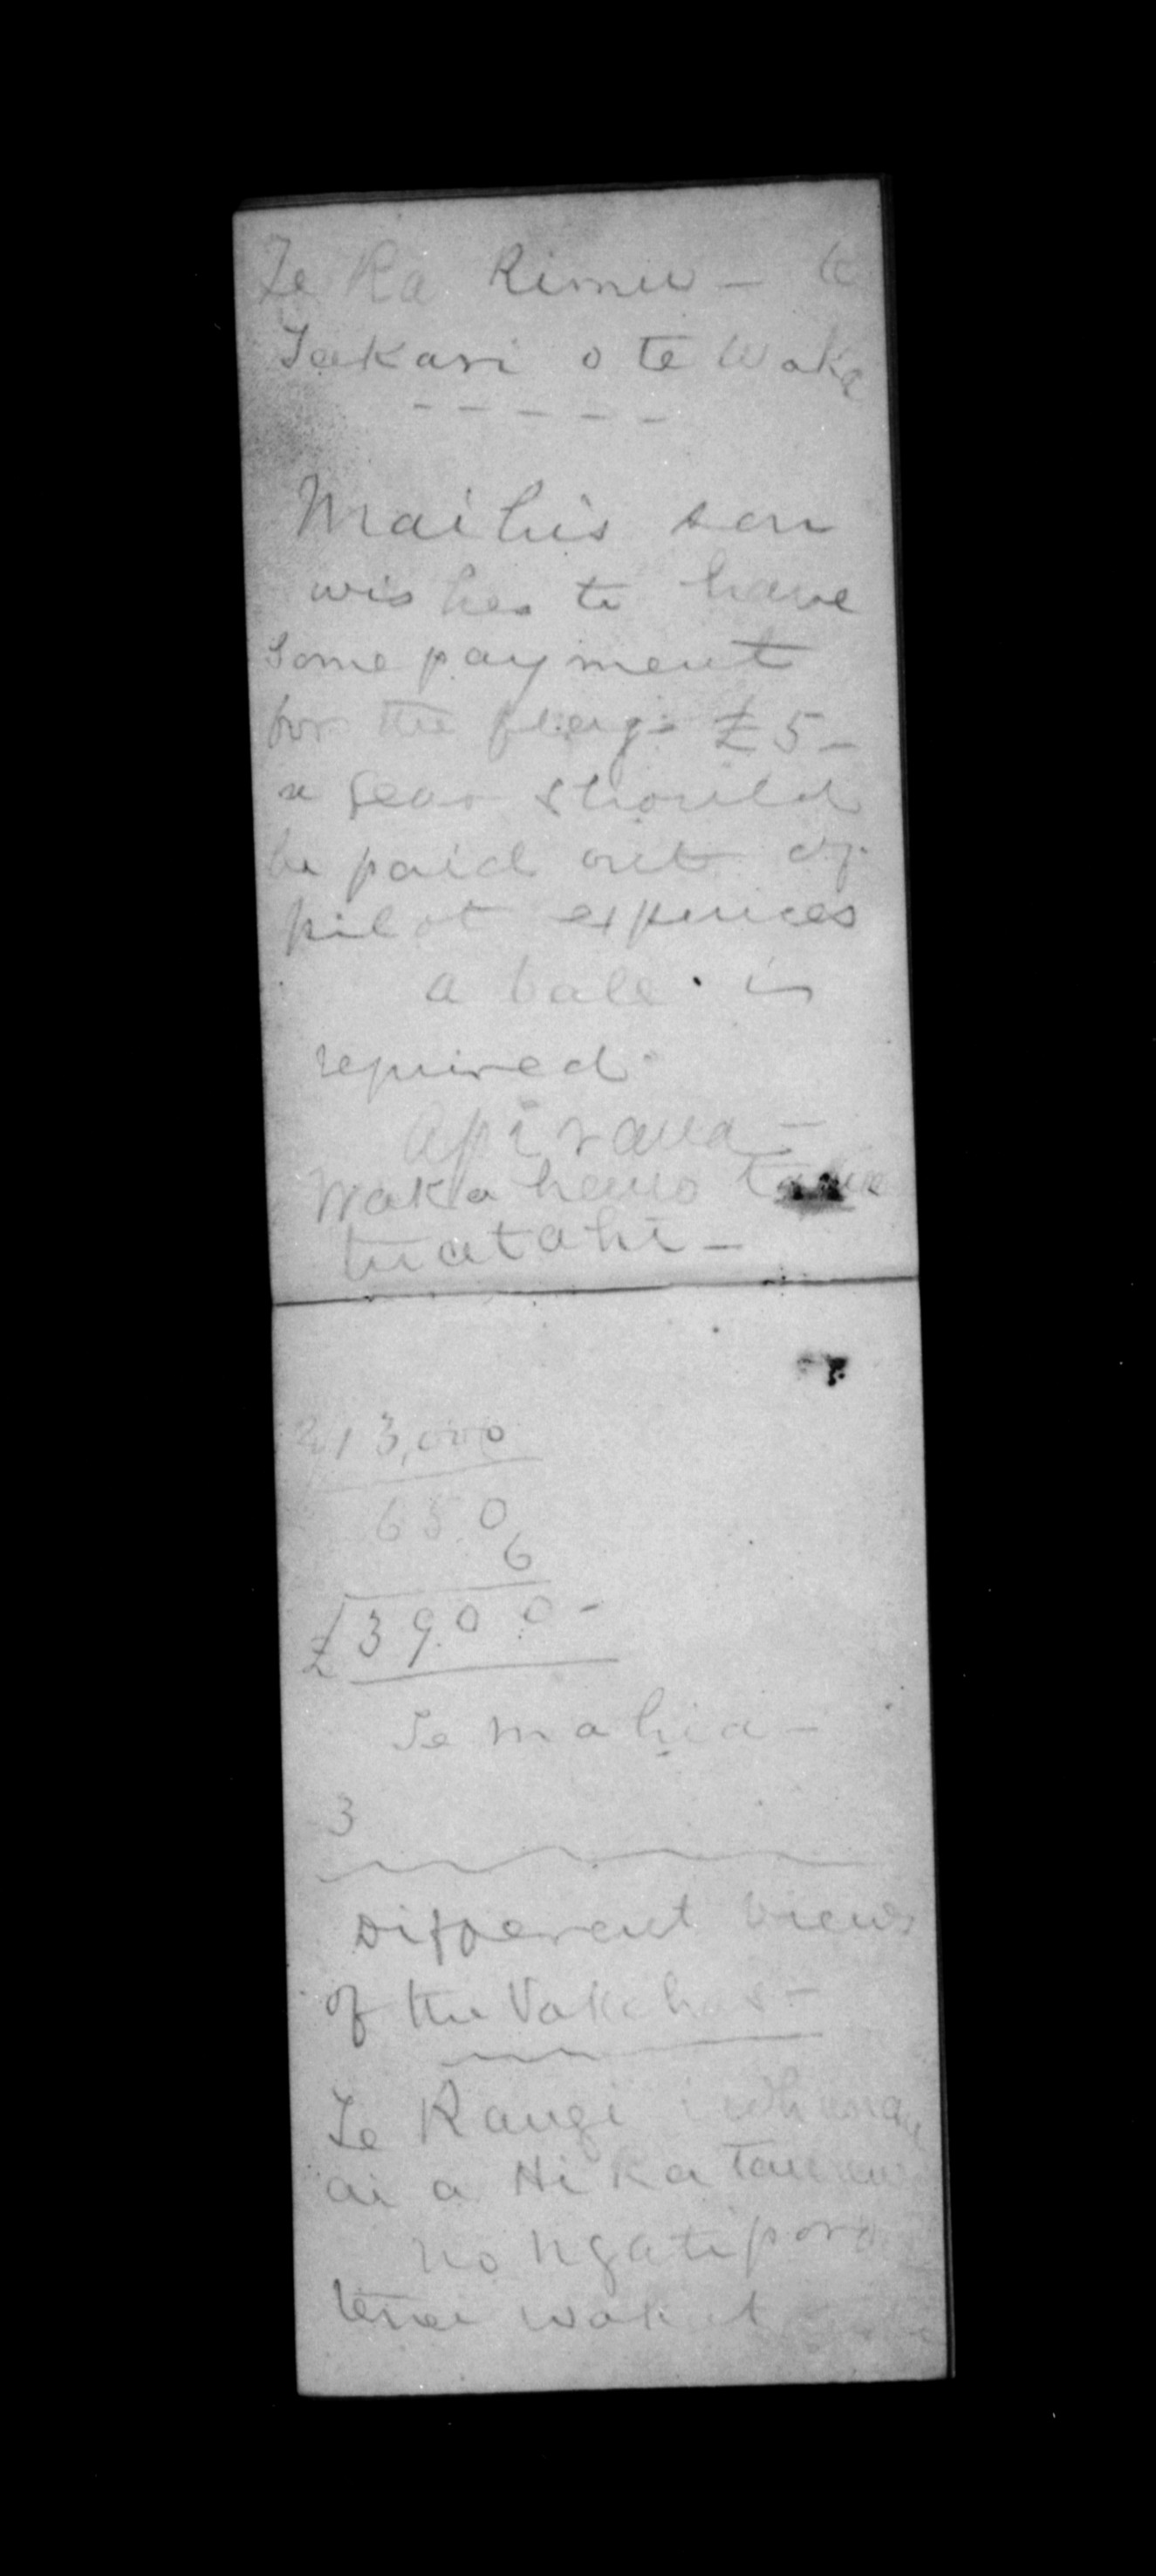 Te Ra Rimu - te
Takari o te Waka
Maihis son
wishes to have
some payment
for the flag - £5 -
a year should
be paid out of
pilot expences
a bale is
required.
Apirana -
Waka hemo
tuatahi -
213,000
650
6
£3900 -
Te Mahia -
3
Different views
of the Pakehas -
Te Rangi i whanau
ai a Hika
no Ngatiporou
tenei